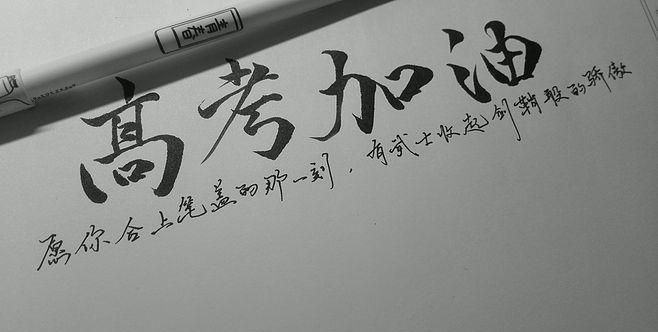 高考加油
愿你合上笔盖的那一刻，有武士收起剑鞘般的骄傲